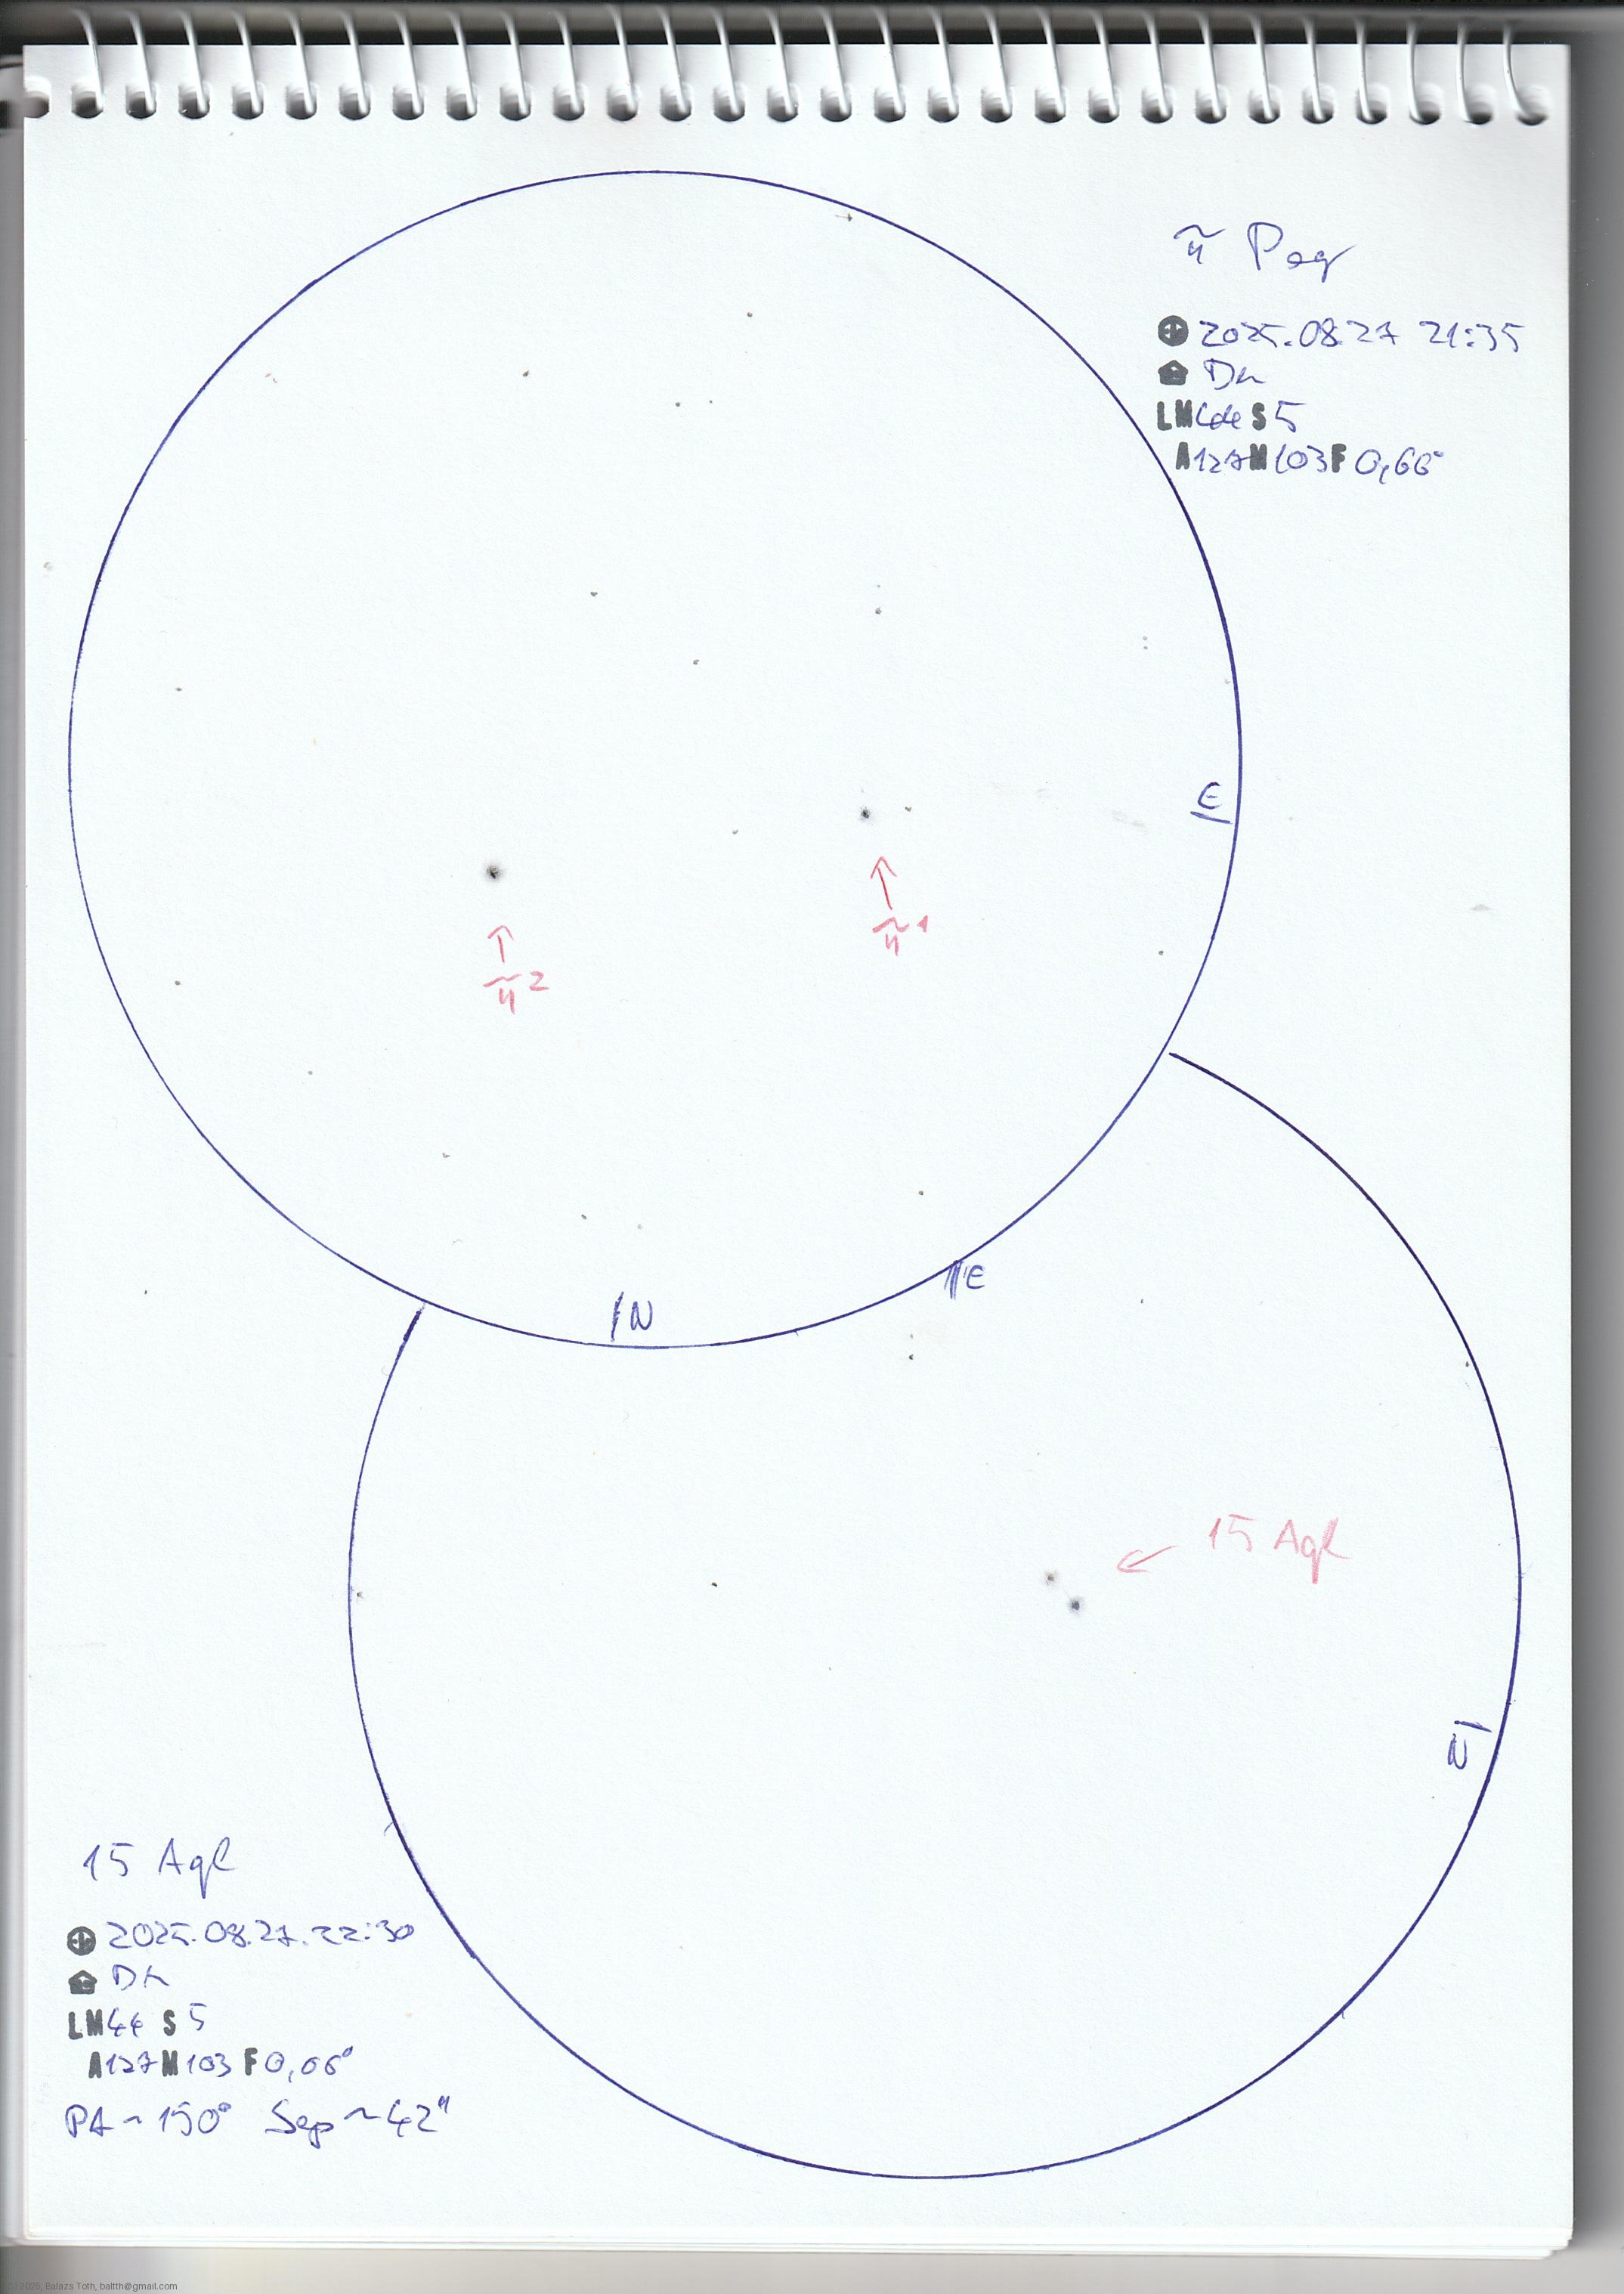 π Peg
2025.08.27 21:35
Dh
LM 44 S 5
A 127 M 103 F 0,66°
E
π 1
π 2
N
E
15 Aql
N
15 Aql
2025.08.27. 22:30
Dh
LM 44 S 5
A 127 M 103 F 0,66°
PA ~ 150° Sep ~ 42"
© 2025, Balazs Toth, baltth@gmail.com